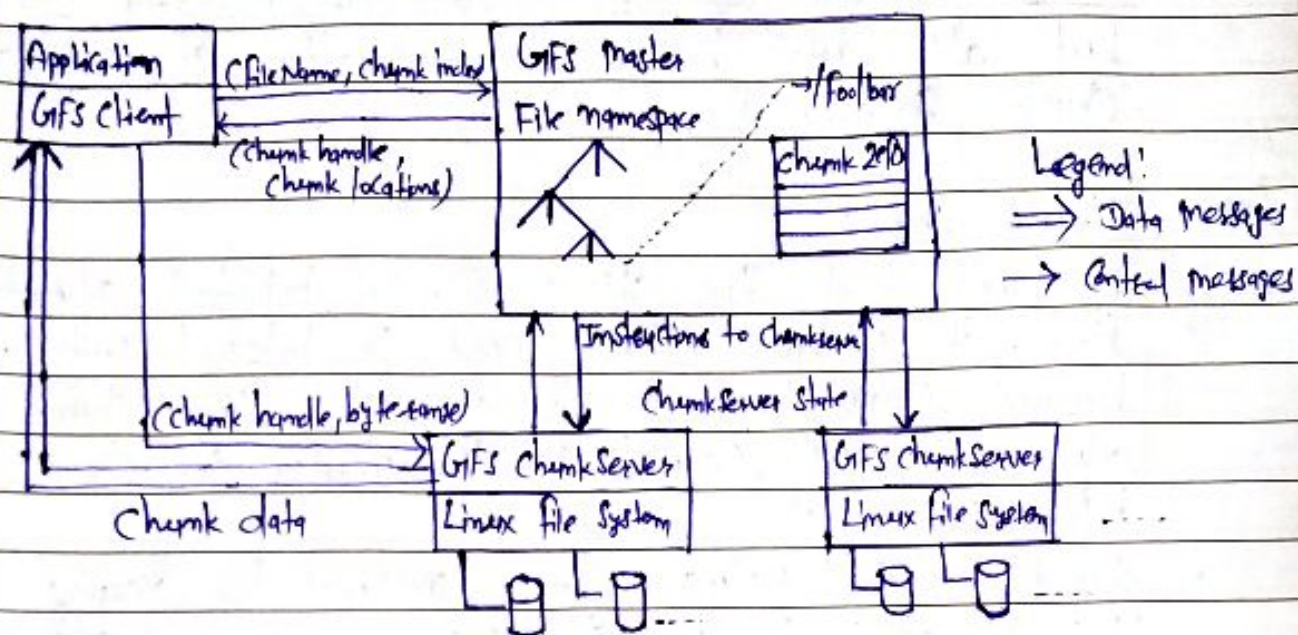 Application
GFS Client
(fileName, Chunk index)
(Chunk handle,
Chunk locations)
GFS Master
File namespace
/foo/bar
Chunk 2ef0
Legend:
Data messages
Control messages
Instructions to Chunkserver
Chunkserver state
(Chunk handle, byte range)
Chunk data
GFS ChunkServer
Linux file System
GFS ChunkServer
Linux file System